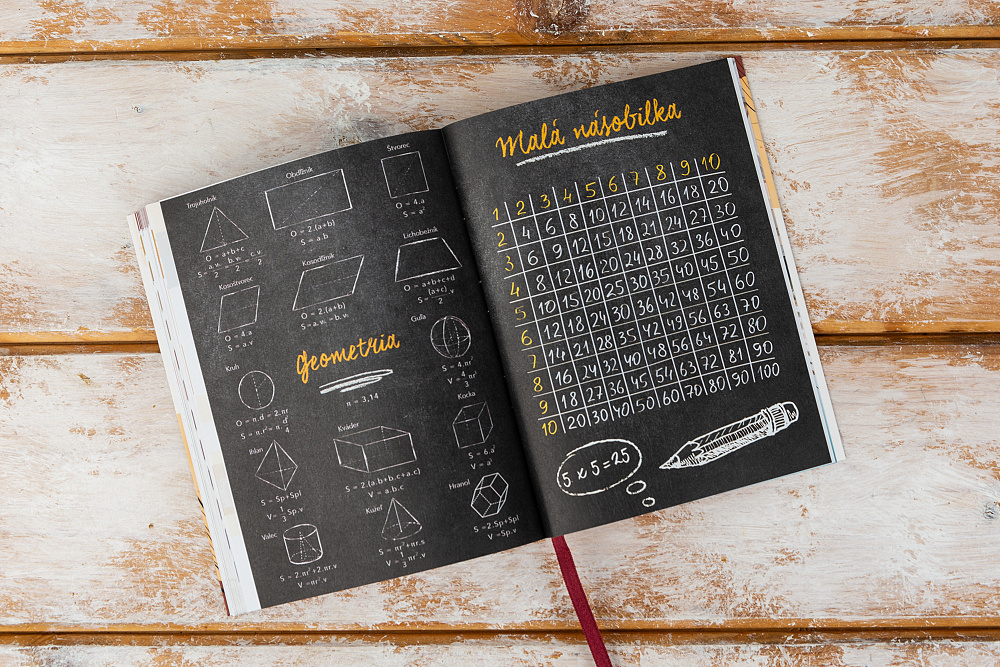 Trojuholník
O = a+b+c
S = a.vₐ/2 = b.v_b/2 = c.v_c/2
Obdĺžnik
O = 2.(a+b)
S = a.b
Štvorec
O = 4.a
S = a²
Kosoštvorec
O = 4.a
S = a.v
Kosodĺžnik
O = 2.(a+b)
S = a.vₐ = b.v_b
Lichobežník
O = a+b+c+d
S = (a+c)/2 .v
Geometria
π = 3,14
Kruh
O = π.d = 2.πr
S = π.r² = π d²/4
Guľa
S = 4.πr²
V = 4/3 πr³
Ihlan
S = Sp+Spl
V = 1/3 Sp.v
Kváder
S = 2.(a.b+b.c+a.c)
V = a.b.c
Kocka
S = 6.a²
V = a³
Valec
S = 2.πr²+2.πr.v
V = πr².v
Kužeľ
S = πr²+πr.s
V = 1/3 πr².v
Hranol
S = 2.Sp+Spl
V = Sp.v
Malá násobilka
1 2 3 4 5 6 7 8 9 10
2 4 6 8 10 12 14 16 18 20
3 6 9 12 15 18 21 24 27 30
4 8 12 16 20 24 28 32 36 40
5 10 15 20 25 30 35 40 45 50
6 12 18 24 30 36 42 48 54 60
7 14 21 28 35 42 49 56 63 70
8 16 24 32 40 48 56 64 72 80
9 18 27 36 45 54 63 72 81 90
10 20 30 40 50 60 70 80 90 100
5 x 5 = 25